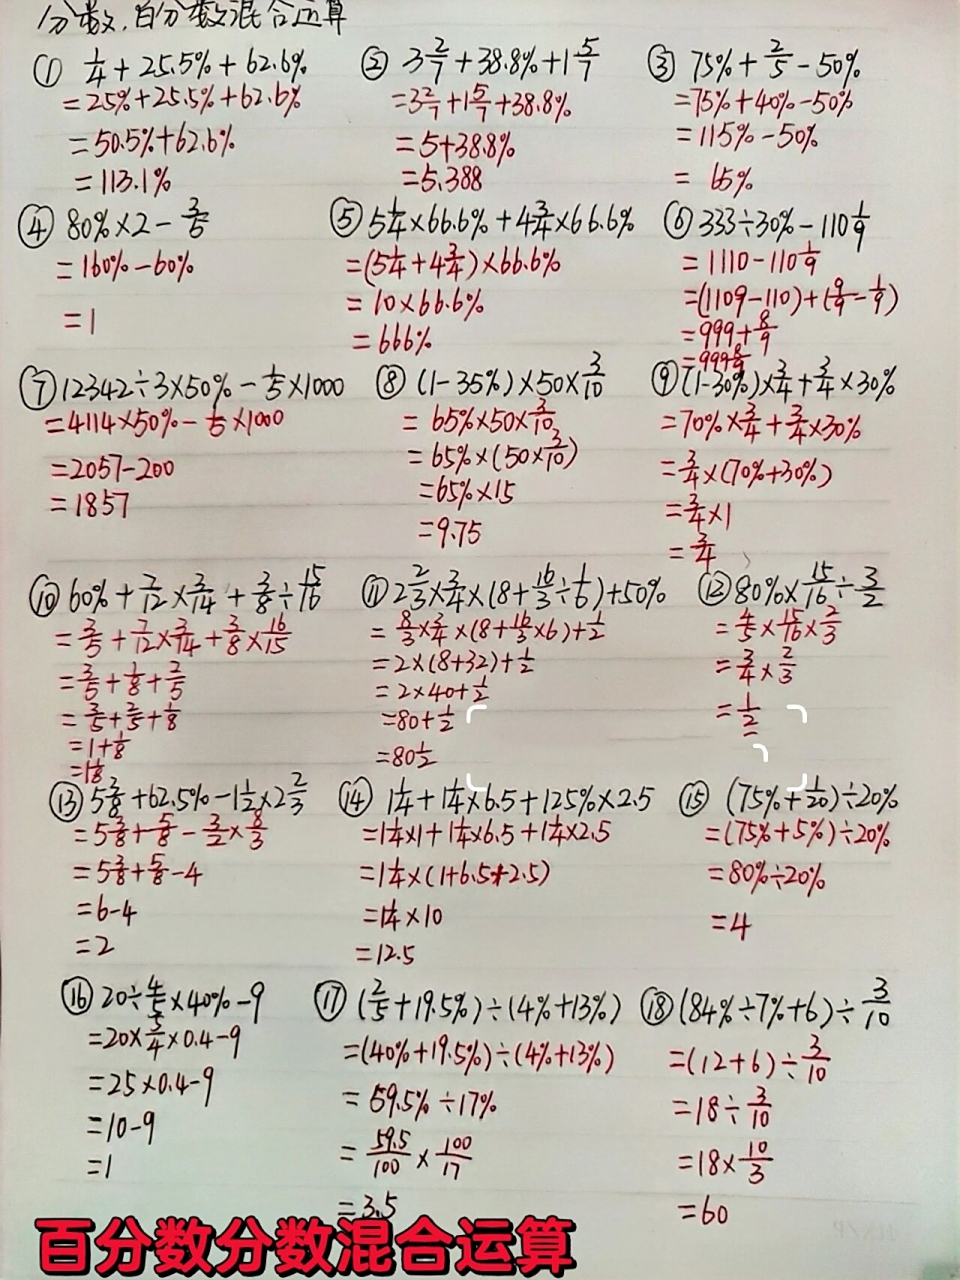 分数、百分数混合运算
① 1/4+25.5%+62.6%
=25%+25.5%+62.6%
=50.5%+62.6%
=113.1%
② 3 2/7+38.8%+1 5/7
=3 2/7+1 5/7+38.8%
=5+38.8%
=5.388
③ 75%+2/5-50%
=75%+40%-50%
=115%-50%
= 65%
④ 80%×2-3/5
=160%-60%
=1
⑤ 5 1/4×66.6%+4 3/4×66.6%
=(5 1/4+4 3/4)×66.6%
=10×66.6%
=666%
⑥ 333÷30%-110 1/9
=1110-110 1/9
=(1109-110)+(9/9-1/9)
=999+8/9
=999 8/9
⑦ 12342÷3×50%-1/5×1000
=4114×50%-1/5×1000
=2057-200
=1857
⑧ (1-35%)×50×3/10
= 65%×50×3/10
=65%×(50×3/10)
=65%×15
=9.75
⑨ (1-30%)×3/4+3/4×30%
=70%×3/4+3/4×30%
=3/4×(70%+30%)
=3/4×1
=3/4
⑩ 60%+7/12×3/14+3/8÷15/16
=3/5+7/12×3/14+3/8×16/15
=3/5+1/8+2/5
=3/5+2/5+1/8
=1+1/8
=1 1/8
⑪ 2 2/3×3/4×(8+16/3÷1/6)+50%
=8/3×3/4×(8+16/3×6)+1/2
=2×(8+32)+1/2
=2×40+1/2
=80+1/2
=80 1/2
⑫ 80%×15/16÷3/2
=4/5×15/16×2/3
=3/4×2/3
=1/2
⑬ 5 3/8+62.5%-1 1/2×2 2/3
=5 3/8+5/8-3/2×8/3
=5 3/8+5/8-4
=6-4
=2
⑭ 1 1/4+1 1/4×6.5+125%×2.5
=1 1/4×1+1 1/4×6.5+1 1/4×2.5
=1 1/4×(1+6.5+2.5)
=1 1/4×10
=12.5
⑮ (75%+1/20)÷20%
=(75%+5%)÷20%
=80%÷20%
=4
⑯ 20÷4/5×40%-9
=20×5/4×0.4-9
=25×0.4-9
=10-9
=1
⑰ (2/5+19.5%)÷(4%+13%)
=(40%+19.5%)÷(4%+13%)
=59.5%÷17%
=59.5/100×100/17
=3.5
⑱ (84%÷7%+6)÷3/10
=(12+6)÷3/10
=18÷3/10
=18×10/3
=60
百分数分数混合运算